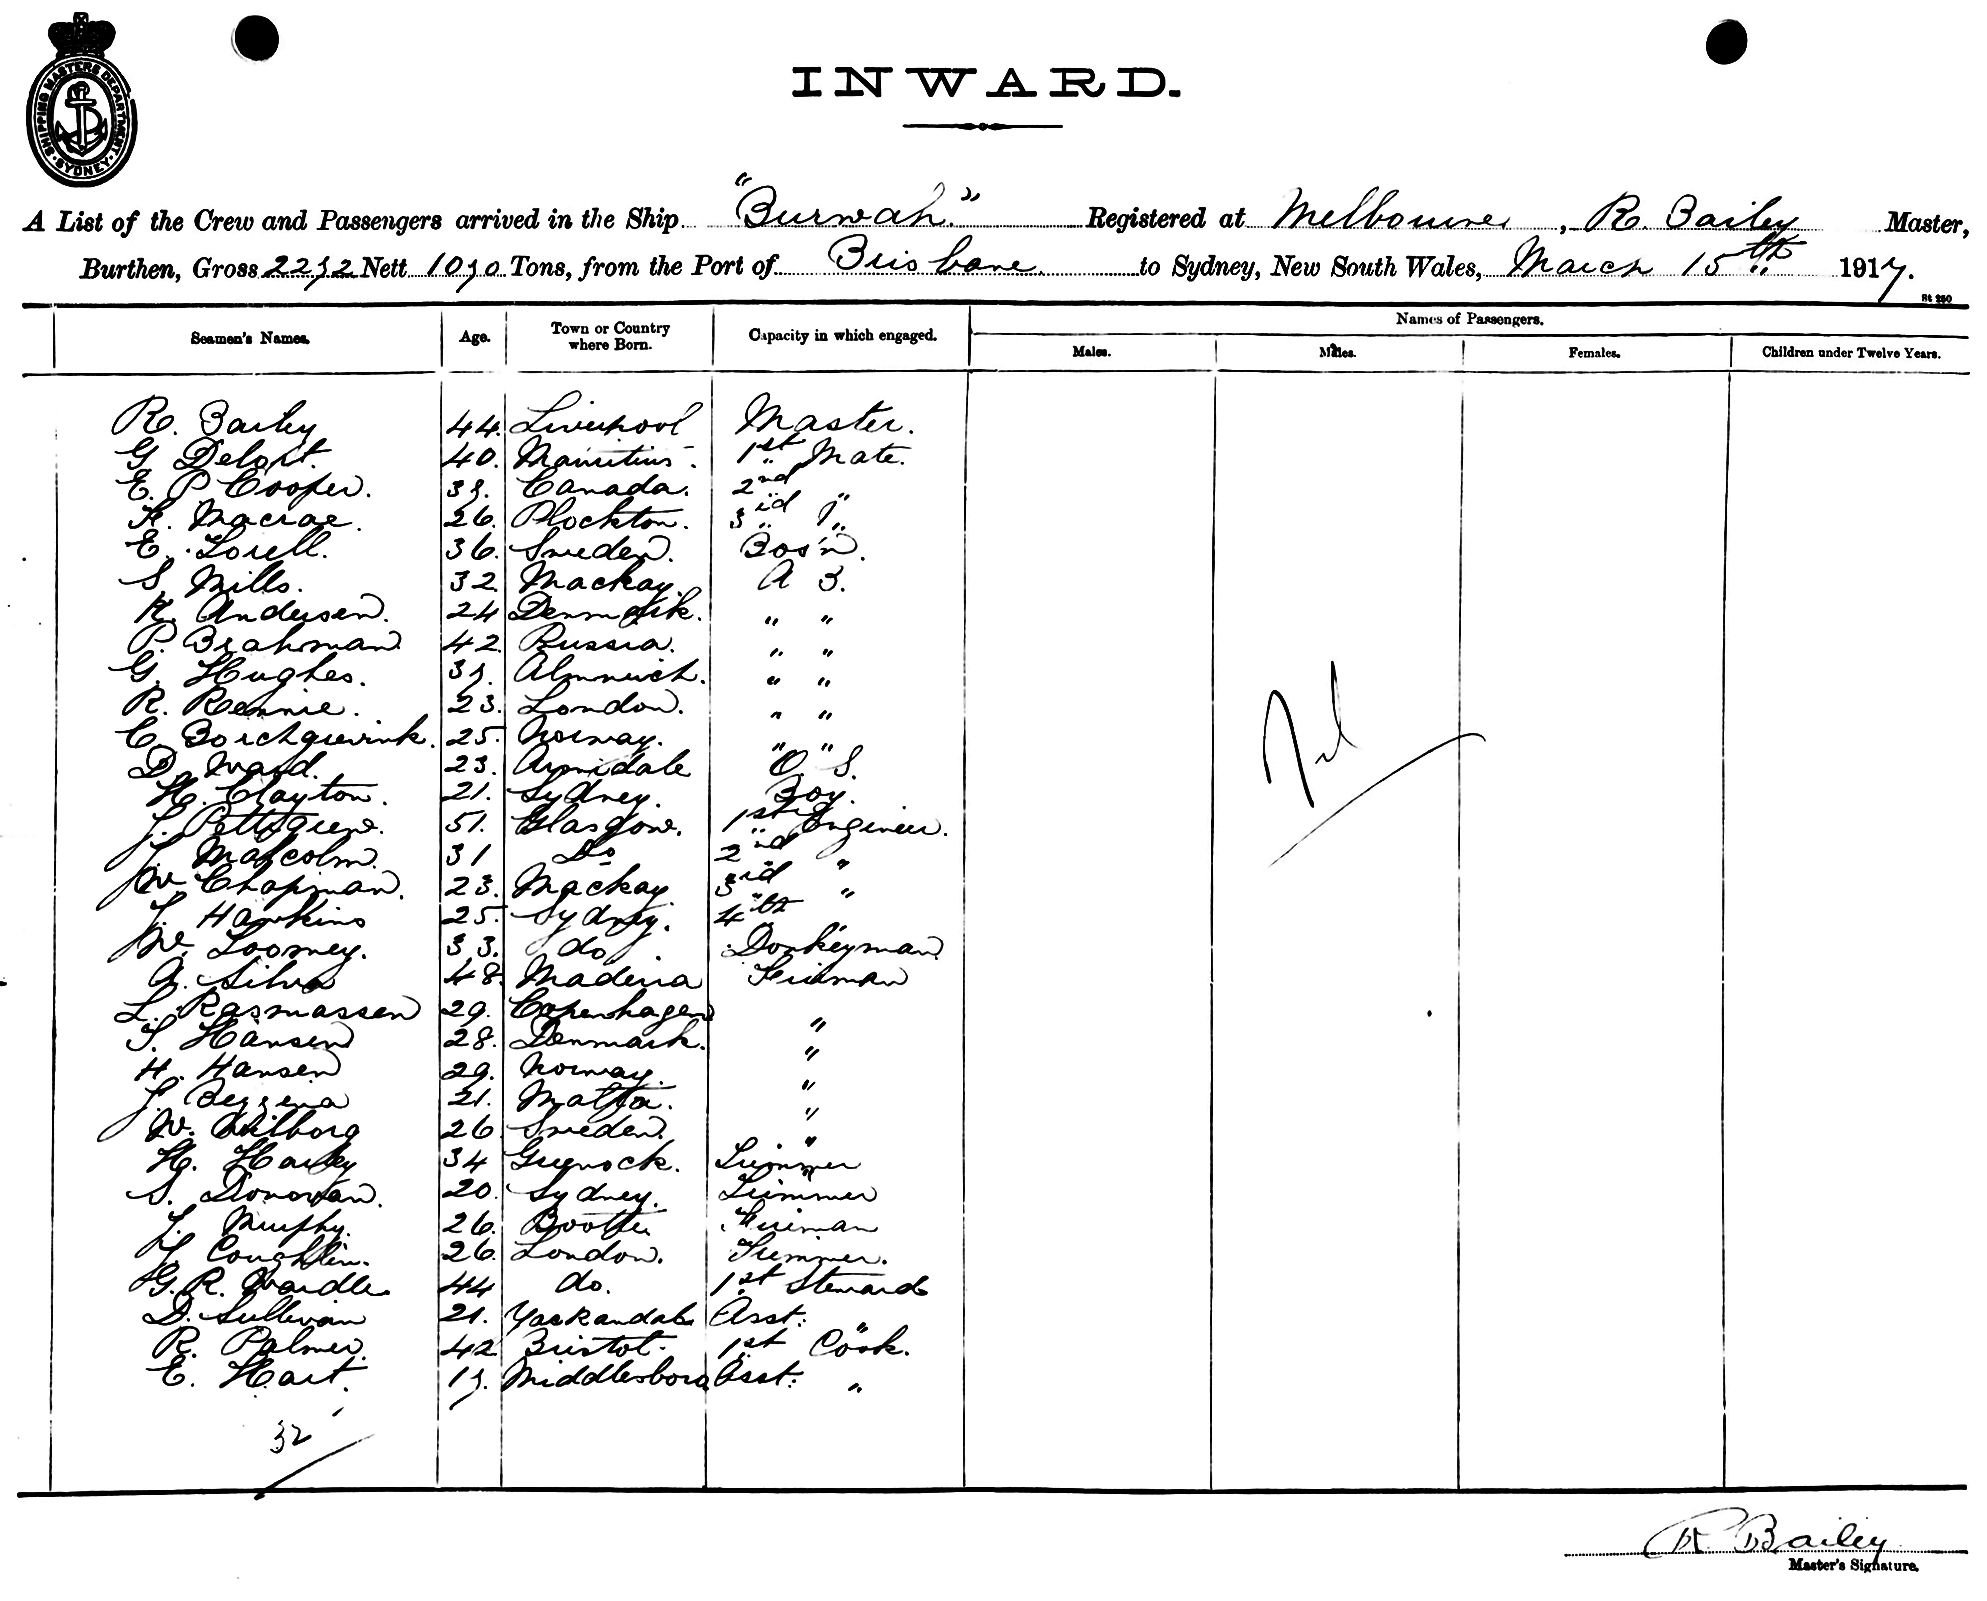 SHIPPING MASTERS DEPARTMENT SYDNEY
INWARD.
A List of the Crew and Passengers arrived in the Ship "Burwah." Registered at Melbourne, R. Bailey Master,
Burthen, Gross Nett Tons, from the Port of Brisbane. to Sydney, New South Wales, March 15th 1917.
Rt 250
Seamen's Names. Age. Town or Country where Born. Capacity in which engaged. Names of Passengers.
Males. Males. Females. Children under Twelve Years.
R. Bailey 44. Liverpool Master.
G Delort. 40. Mauritius. 1st Mate.
E. P Cooper. Canada. 2nd "
Macrae. 26. Plockton. 3rd "
E. Lorell. 36. Sweden. Bos'n.
S. Mills. 32. Mackay. A B.
Andersen. 24 Denmark. " "
P. Brahman 42. Russia. " "
G. Hughes. Almwich. " "
R. Rennie. 23. London. " "
C Borchgrevink. 25. Norway. " "
D. Ward. 23. Armidale O. S.
H. Clayton. 21. Sydney. Boy.
J. Pettigrew. 51. Glasgow. 1st Engineer.
J. Malcolm. 31 Do 2nd "
W Chapman. 23. Mackay. 3rd "
J. Hawkins 25. Sydney. 4th "
W. Loomey. 33. do Donkeyman
A. Silva 48. Madeira Fireman
L. Rasmassen 29. Copenhagen "
S. Hansen 28. Denmark. "
H. Hansen 29. Norway. "
J. 21. Malta. "
W. 26. Sweden. "
H. Harley 34 Greenock. Trimmer
S. Donovan. 20. Sydney. Trimmer
J. Murphy. 26. Bootle Fireman
J Coughlin. 26. London. Trimmer.
G. R. Wardle. 44 do. 1st Steward
D. Sullivan 21. Yackandale Asst: "
R. Palmer. 42 Bristol. 1st Cook.
E. Hart. Middlesboro Asst: "
Nil
32
R Bailey
Master's Signature.